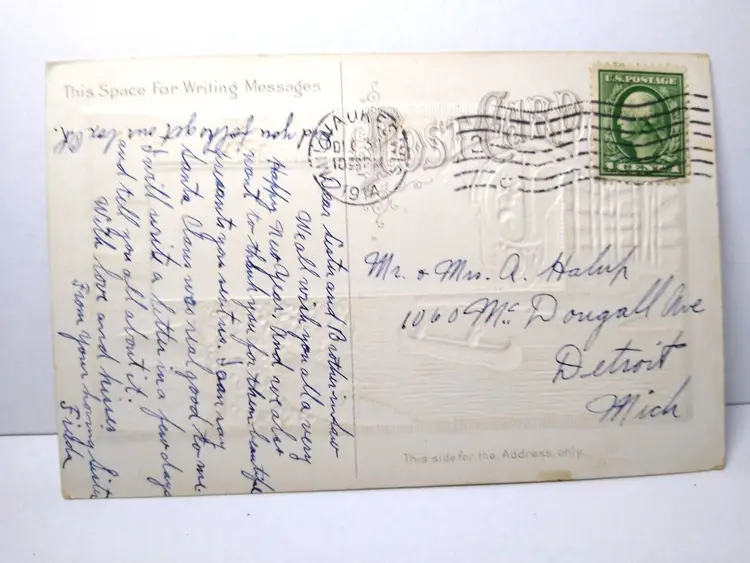 This Space For Writing Messages
Dear Sister and Brother-in-law
We all wish you all a very
Happy New Year, And we also
want to thank you for them beautiful
presents you sent us. I can say
Santa Claus was real good to me.
I will write a letter in a few days
and tell you all about it.
With love and kisses
From your loving Sister
did you folks get our box
POST CARD
MILWAUKEE
DEC 3
1914
U.S. POSTAGE
1 CENT 1
Mr. & Mrs. A. Halup
1060 Mc Dougall Ave
Detroit
Mich
This side for the Address only.